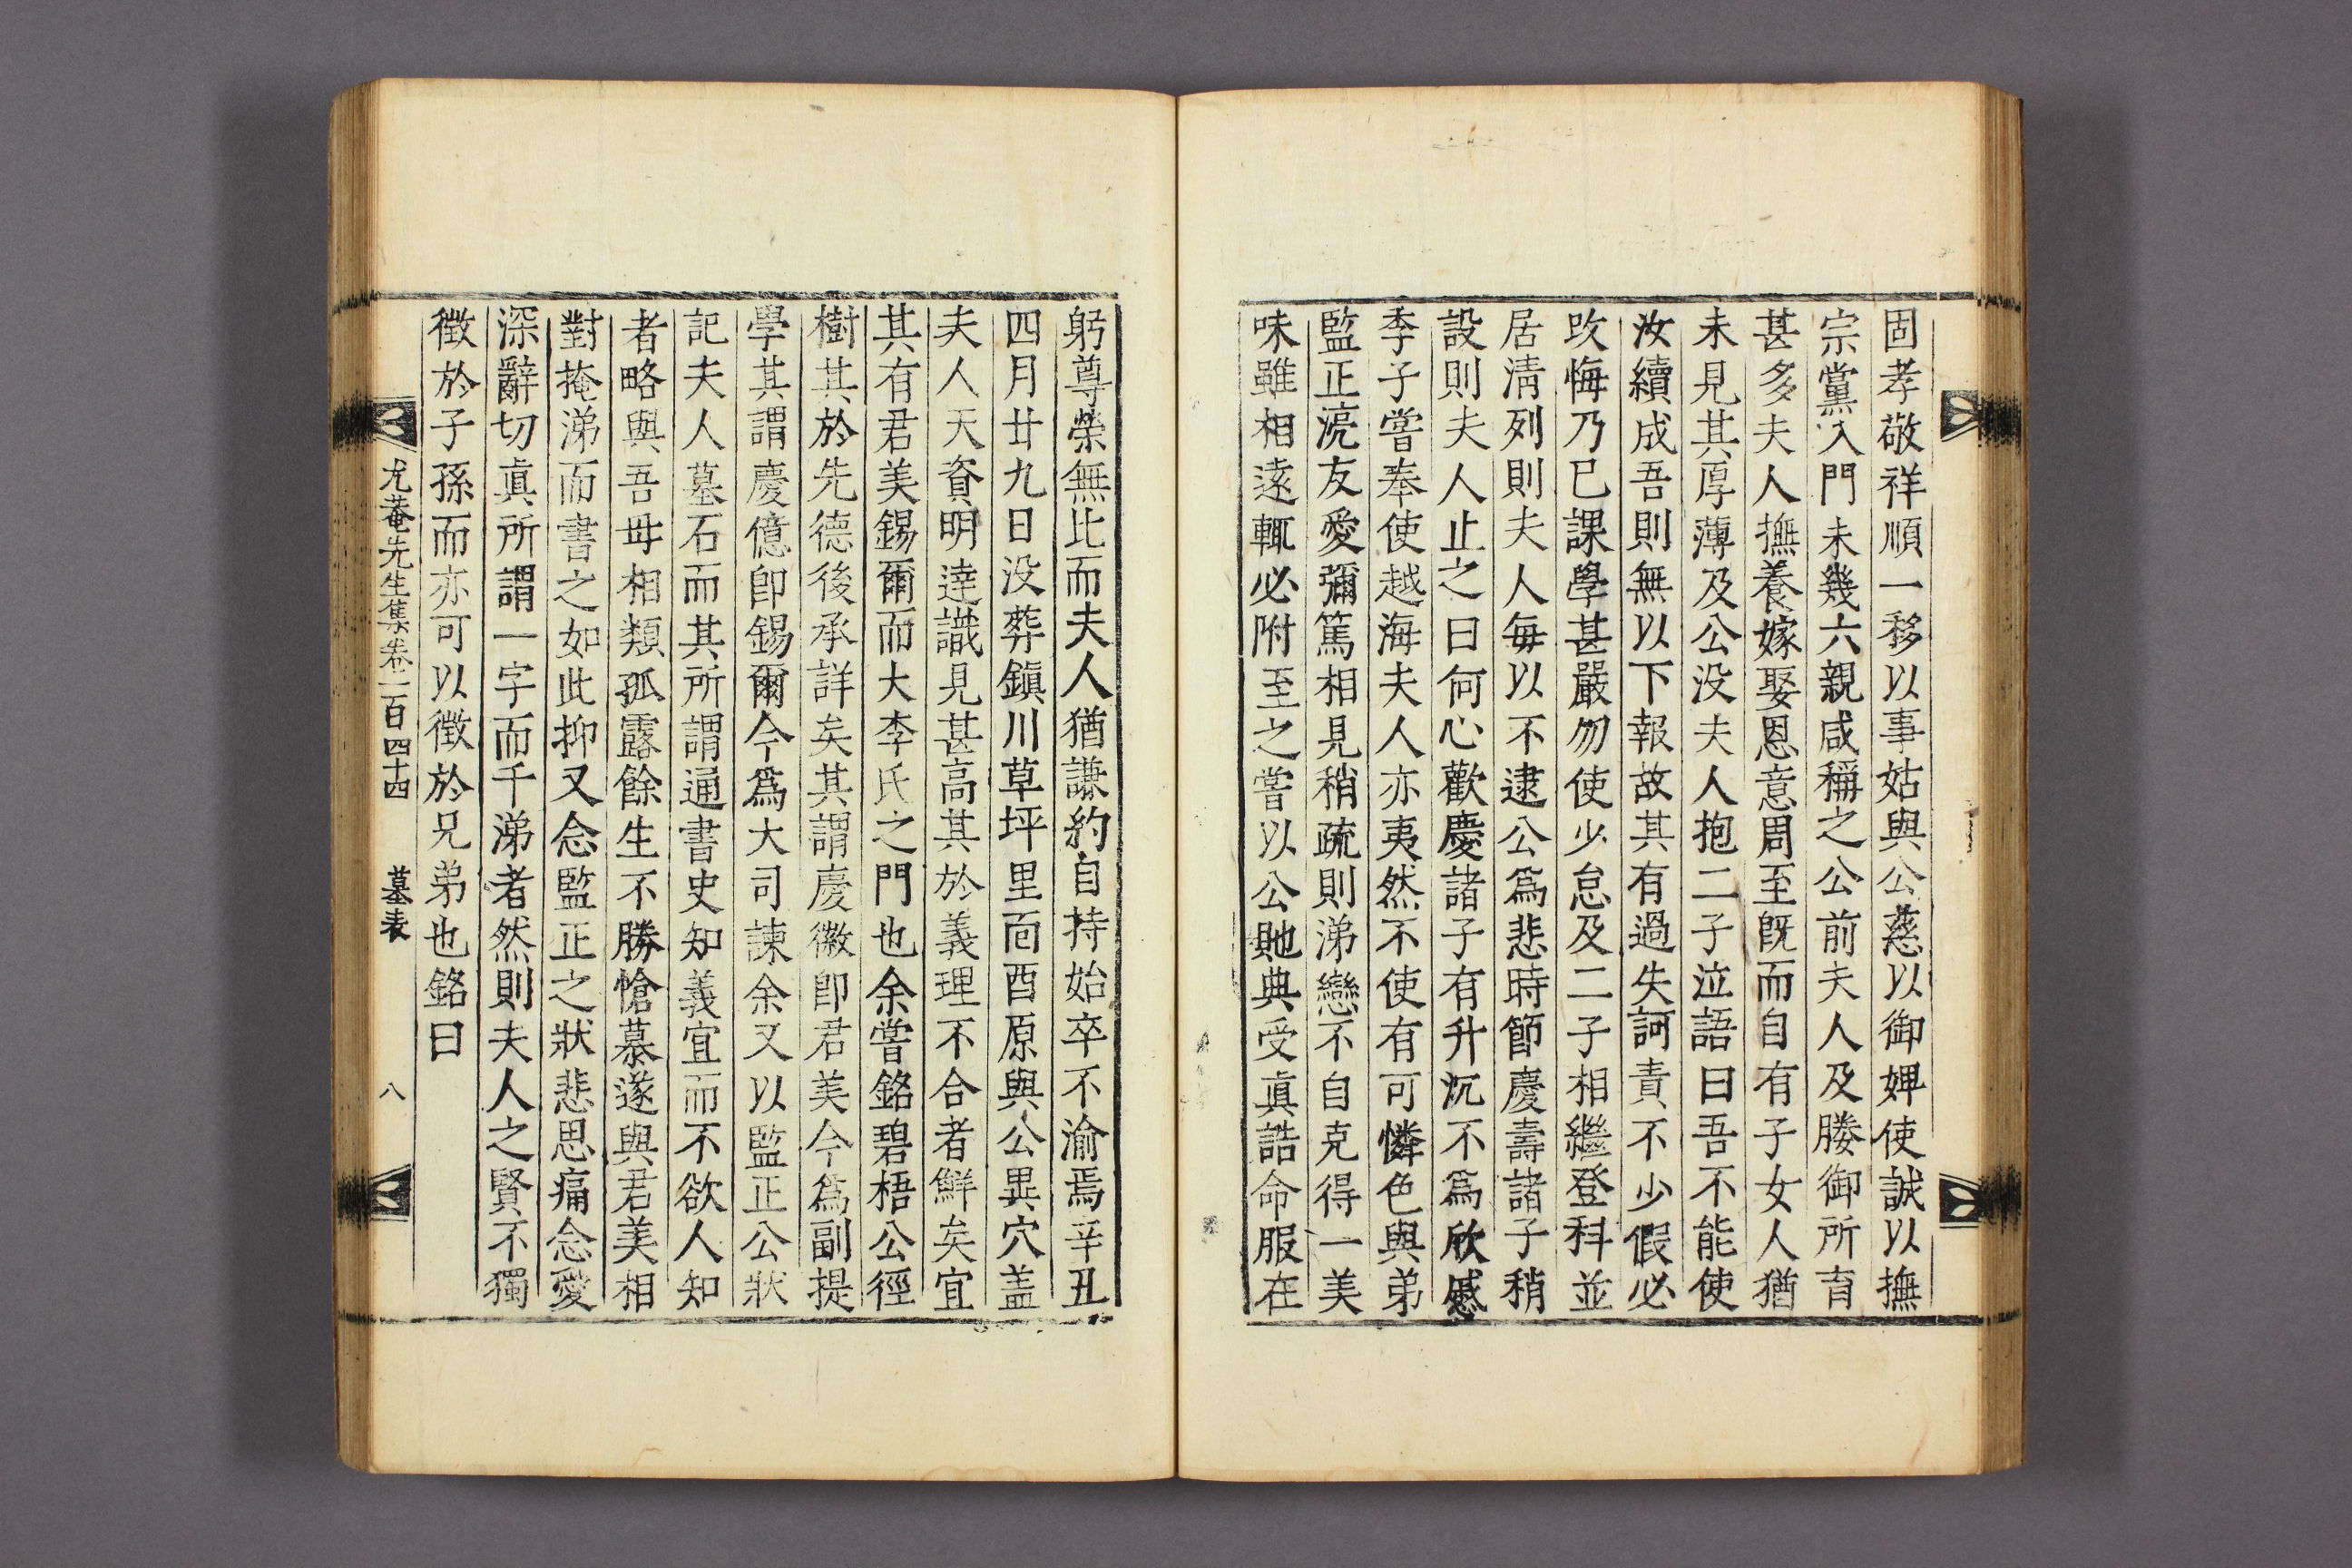 固孝敬祥順一移以事姑與公慈以御婢使誠以撫
宗黨入門未幾六親咸稱之公前夫人及媵御所育
甚多夫人撫養嫁娶恩意周至旣而自有子女人猶
未見其厚薄及公沒夫人抱二子泣語曰吾不能使
汝續成吾則無以下報故其有過失訶責不少假必
改悔乃已課學甚嚴勿使少怠及二子相繼登科並
居淸列則夫人每以不逮公爲悲時節慶壽諸子稍
設則夫人止之曰何心歡慶諸子有升沉不爲欣慼
季子嘗奉使越海夫人亦夷然不使有可憐色與弟
監正湸友愛彌篤相見稍疏則涕戀不自克得一美
味雖相遠輒必附至之嘗以公貤典受眞誥命服在
躬尊榮無比而夫人猶謙約自持始卒不渝焉辛丑
四月廿九日沒葬鎭川草坪里面酉原與公異穴盖
夫人天資明達識見甚高其於義理不合者鮮矣宜
其有君美錫爾而大李氏之門也余嘗銘碧梧公徑
樹其於先德後承詳矣其謂慶徽卽君美今爲副提
學其謂慶億卽錫爾今爲大司諫余又以監正公狀
記夫人墓石而其所謂通書史知義宜而不欲人知
者略與吾母相類孤露餘生不勝愴慕遂與君美相
對掩涕而書之如此抑又念監正之狀悲思痛念愛
深辭切眞所謂一字而千涕者然則夫人之賢不獨
徵於子孫而亦可以徵於兄弟也銘曰
尤菴先生集卷一百四十四 墓表 八